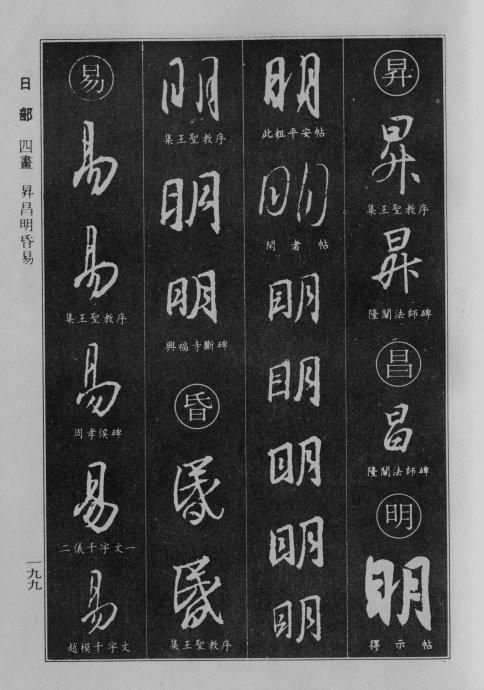 昇
昇
集王聖教序
昇
隆闡法師碑
昌
昌
隆闡法師碑
明
明
得示帖
明
此粗平安帖
明
閒者帖
明
明
明
明
明
明
集王聖教序
明
明
興福寺斷碑
昏
昏
昏
集王聖教序
易
易
易
集王聖教序
易
周孝侯碑
易
二儀千字文一
易
趙模千字文
日部 四畫 昇昌明昏易
一九九